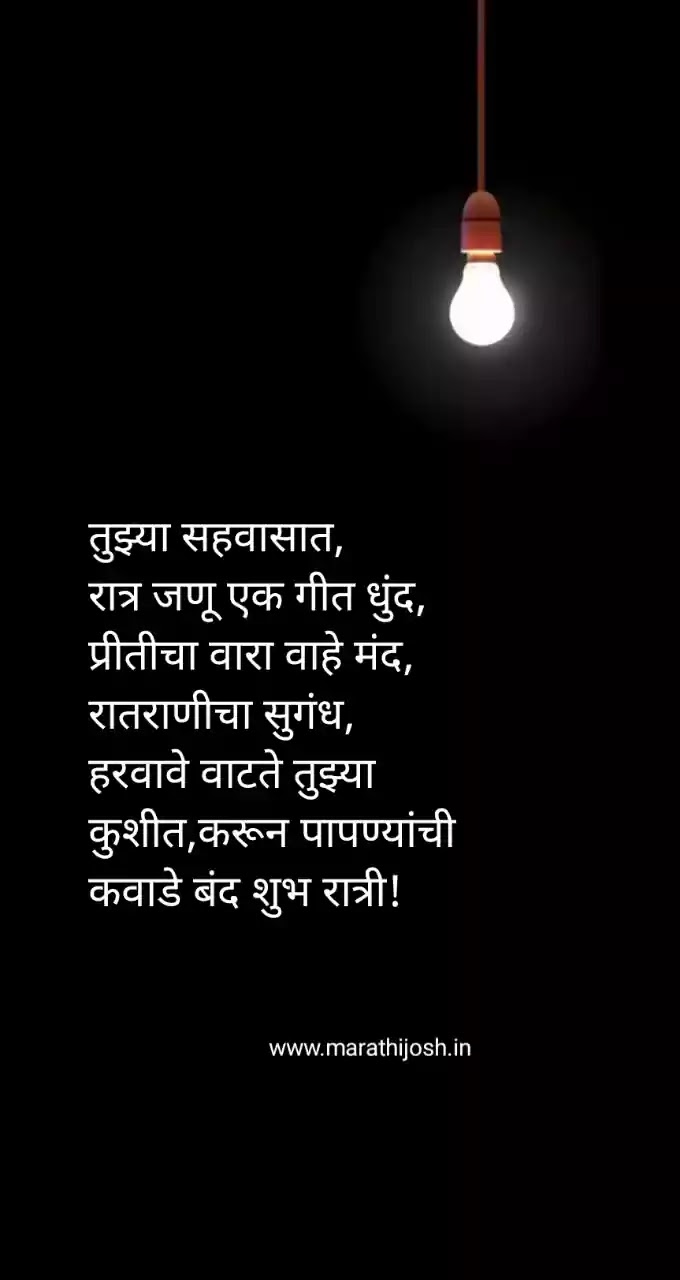 तुझ्या सहवासात,
रात्र जणू एक गीत धुंद,
प्रीतीचा वारा वाहे मंद,
रातराणीचा सुगंध,
हरवावे वाटते तुझ्या
कुशीत,करून पापण्यांची
कवाडे बंद शुभ रात्री!
www.marathijosh.in